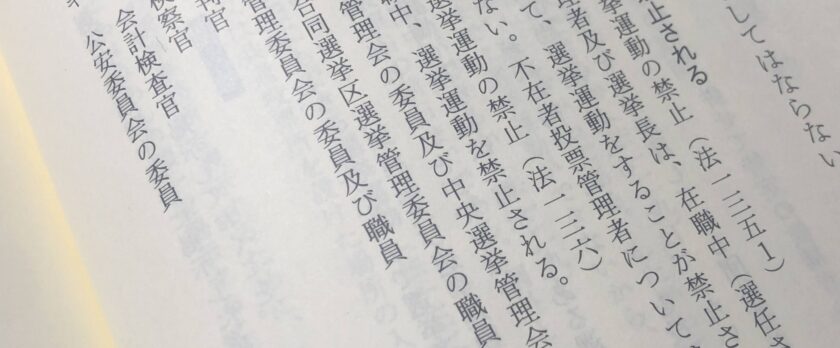 してはならない
禁止される
選挙運動の禁止（法一三五1）
管理者及び選挙長は、在職中（選任さ
て、選挙運動をすることが禁止さ
ない。不在者投票管理者について
選挙運動の禁止（法一三六）
職中、選挙運動を禁止される。
管理会の委員及び中央選挙管理会
合同選挙区選挙管理委員会の職員
管理委員会の委員及び職員
判官
検察官
会計検査官
公安委員会の委員